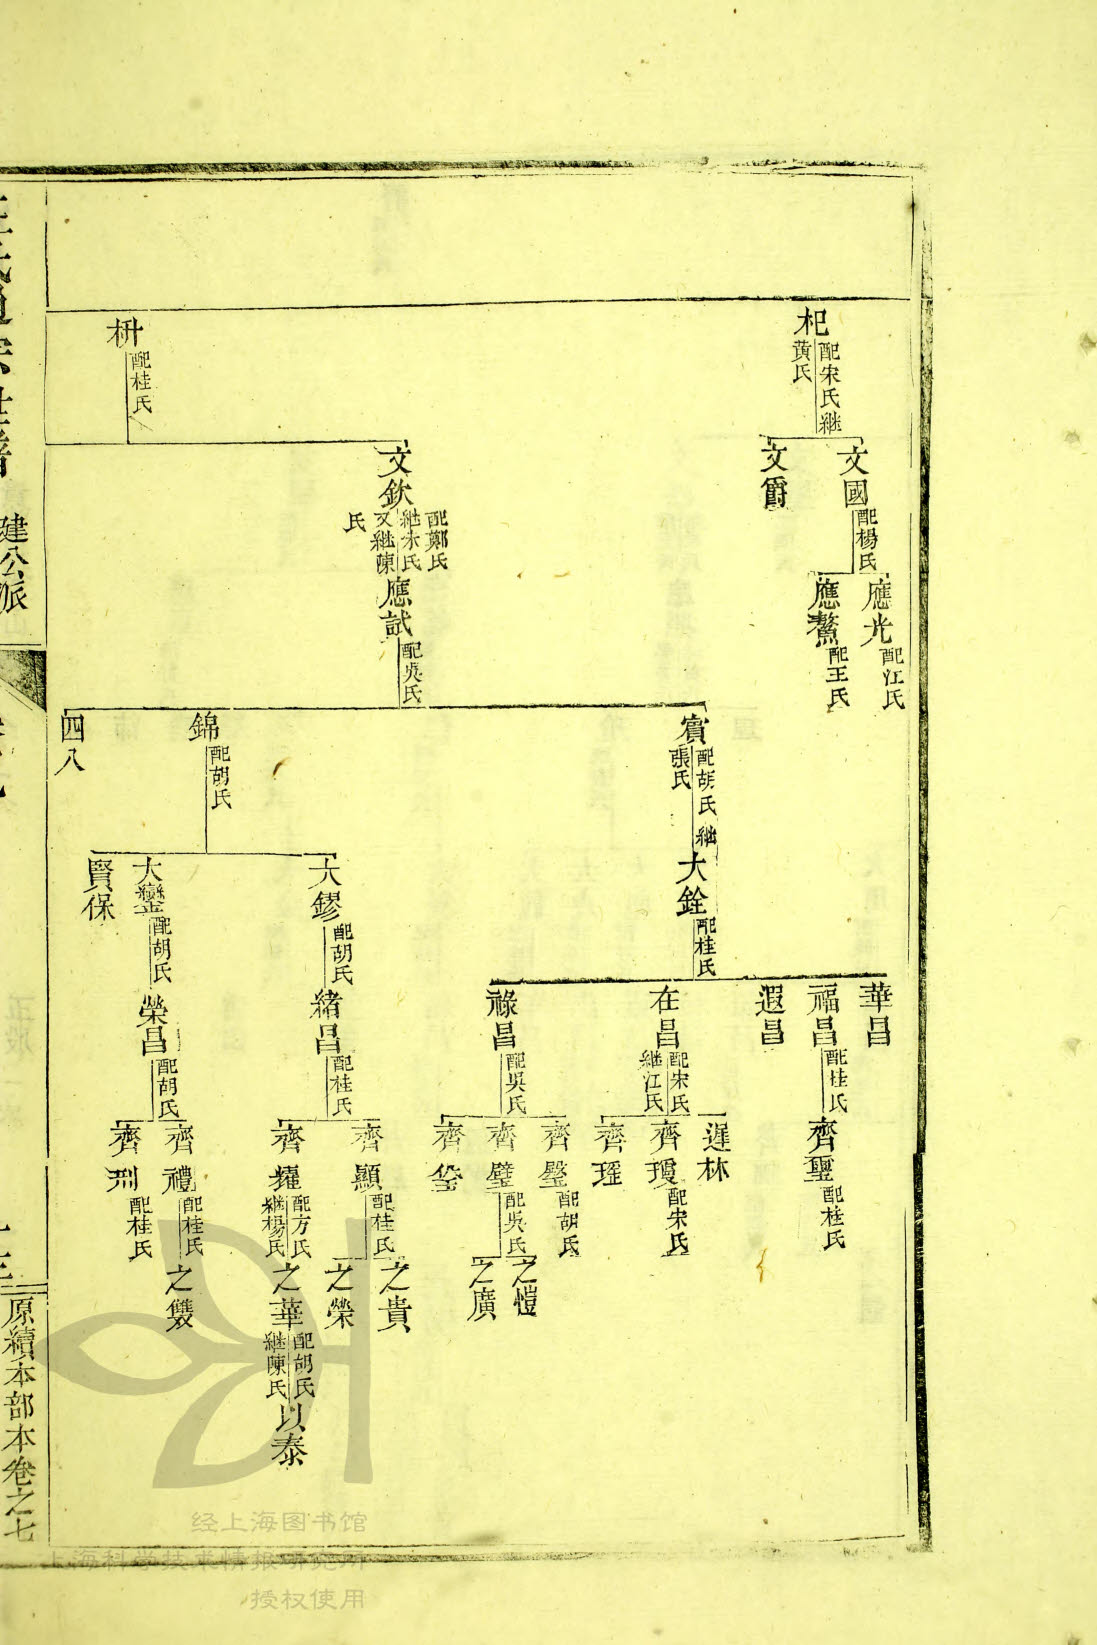 杞
配宋氏繼
黃氏
文國
配楊氏
文爵
應光
配江氏
應鰲
配王氏
枡
配桂氏
文欽
配鄭氏
又繼陳
氏
應試
配吳氏
賓
配胡氏 繼
張氏
大銓
配桂氏
華昌
福昌
配桂氏
齊璽
配桂氏
遐昌
在昌
配宋氏
繼江氏
遲林
齊瓊
配宋氏
齊瑶
祿昌
配吳氏
齊
配胡氏
齊璧
配吳氏
之愷
之廣
齊
錦
配胡氏
大鏐
配胡氏
緒昌
配桂氏
齊顯
配桂氏
之貴
之榮
齊耀
配方氏
繼楊氏
之華
配胡氏
繼陳氏
以泰
大鑾
配胡氏
榮昌
配胡氏
齊禮
配桂氏
之雙
齊
配桂氏
賢保
四八
氏通宗世譜
建公派
原續本部本卷之七
经上海图书馆
上海科学技术情报研究所
授权使用